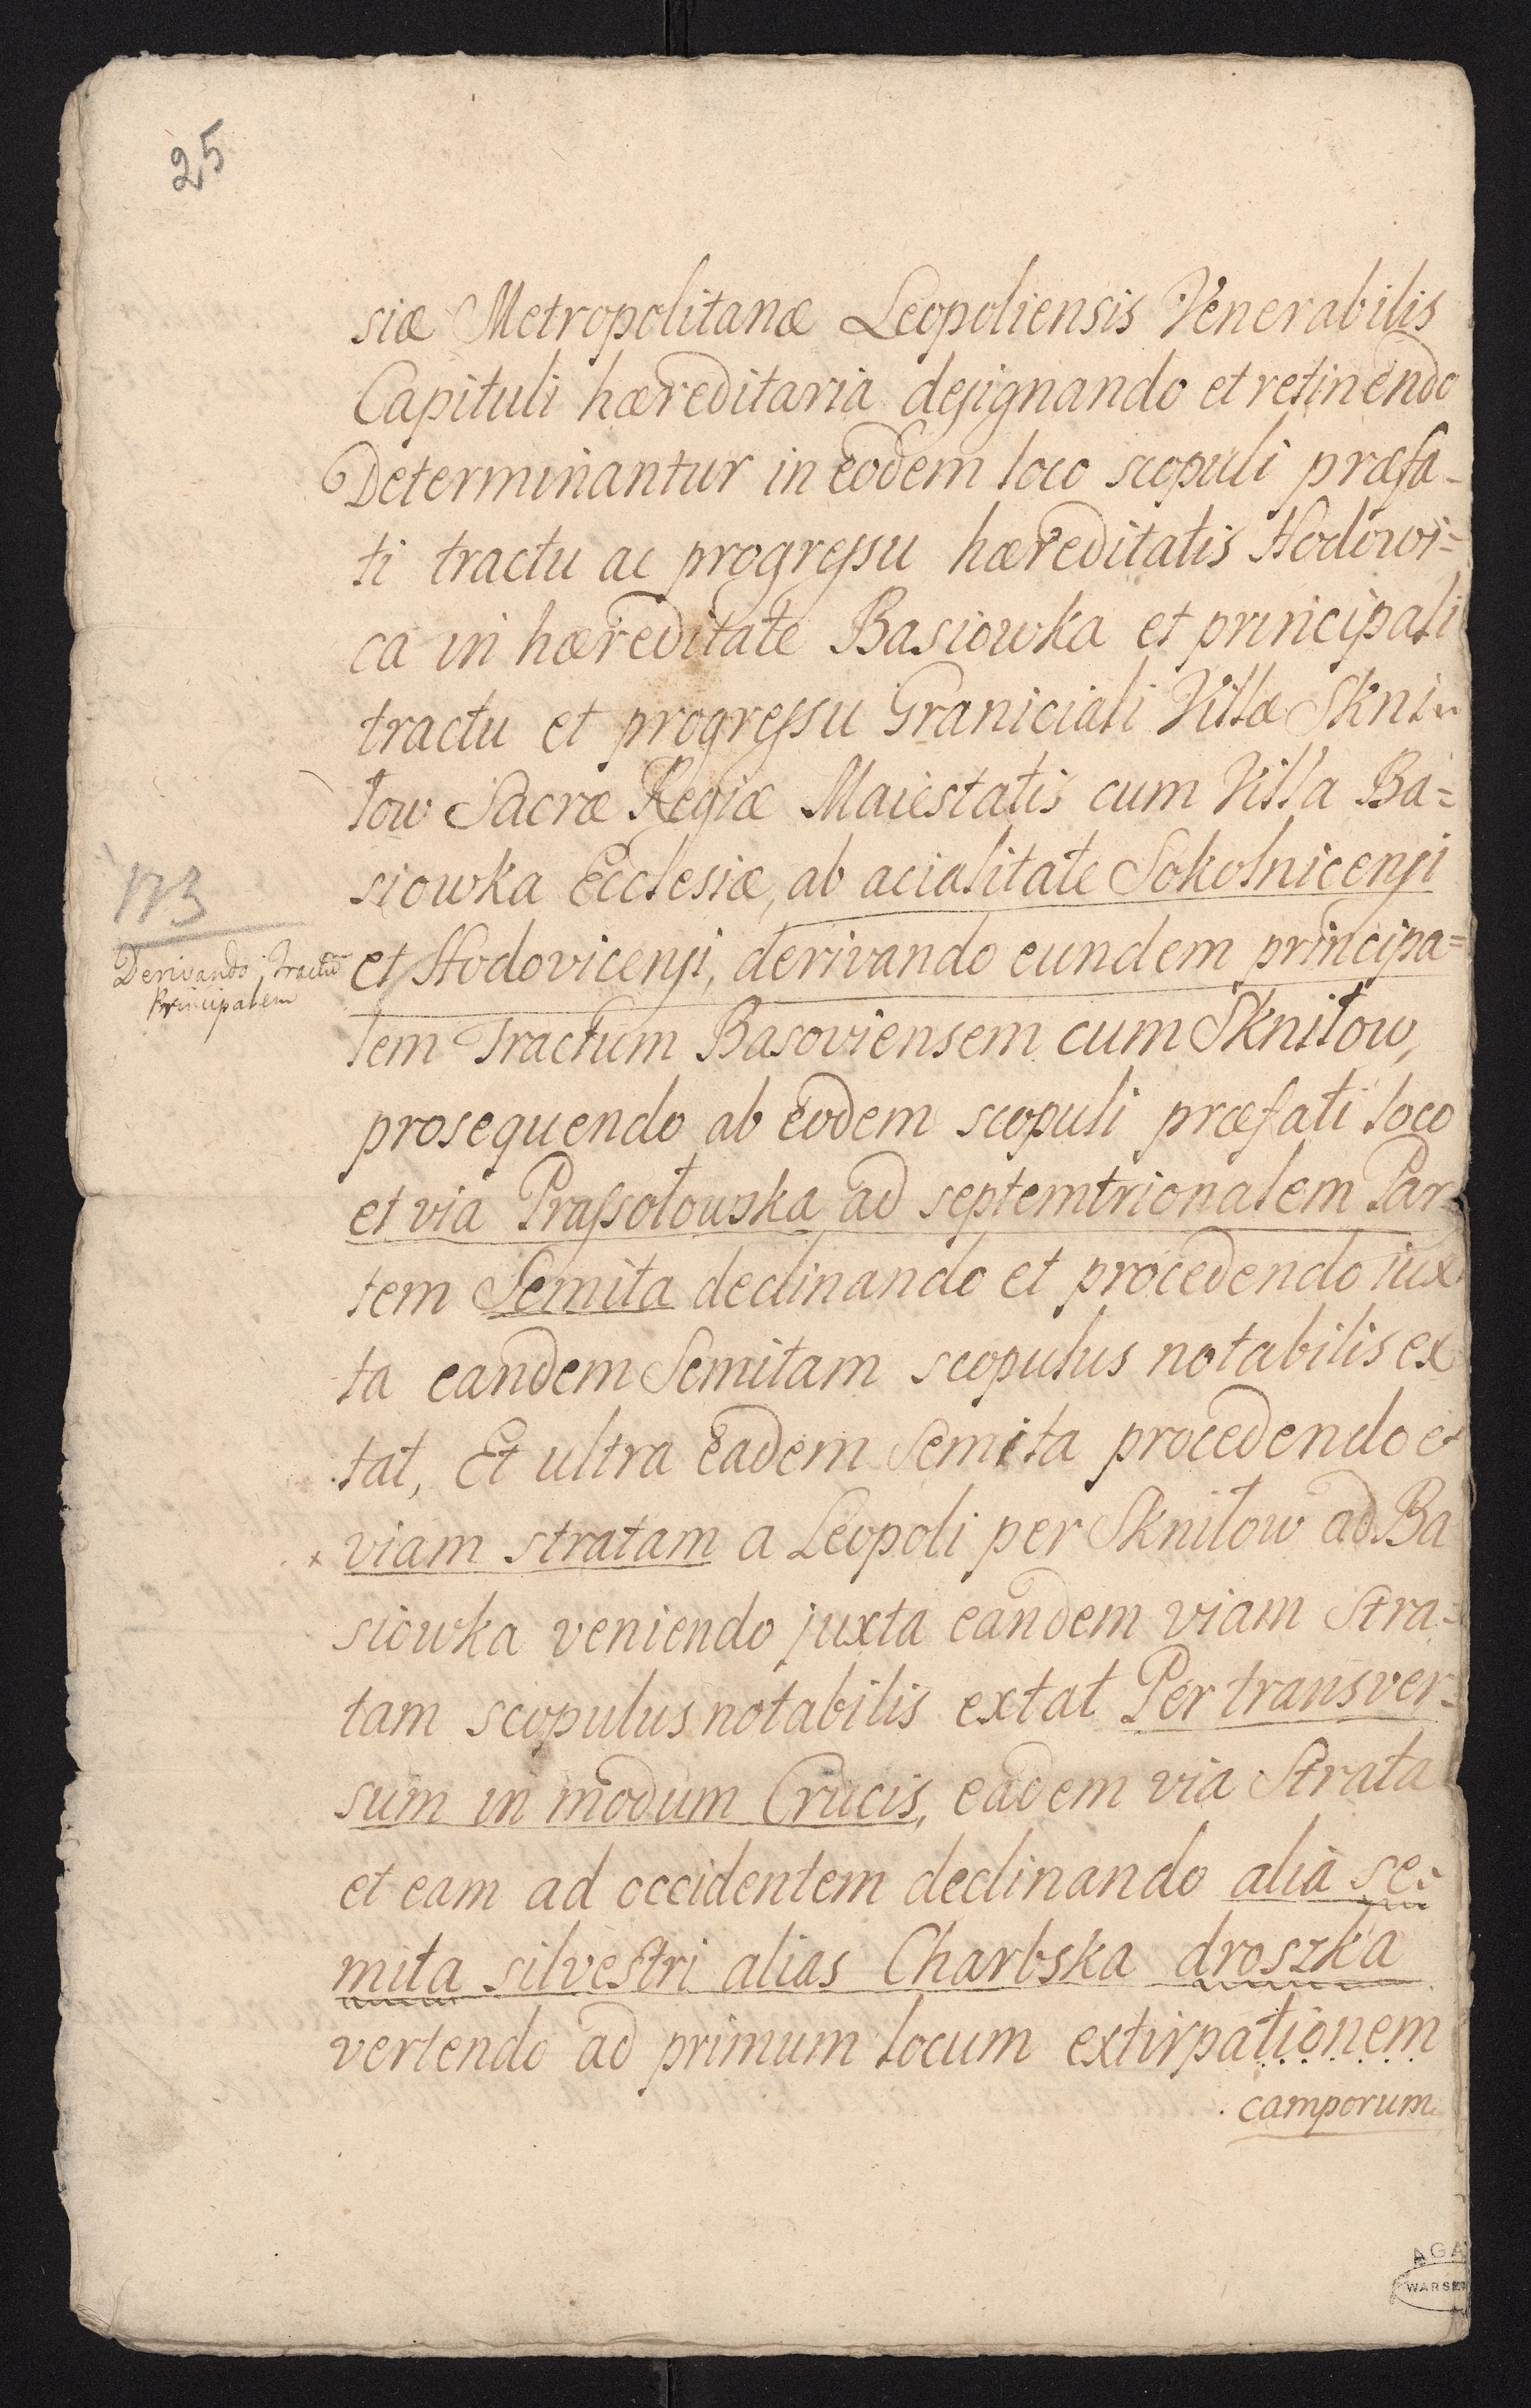 25
siæ Metropolitanæ Leopoliensis Venerabilis
Capituli hæreditaria designando et retinendo
Determinantur in eodem loco scopuli præfa-
ti tractu ac progressu hæreditatis Hodowi=
ca in hæreditate Basiowka et principali
tractu et progressu Graniciali Villæ Skni-
low Sacræ Regiæ Maiestatis cum Villa Ba=
siowka Ecclesiæ, ab acialitate Sokolnicensi
173
Derivando Tractū
Principalem
et Hodovicensi, derivando eundem principa=
lem Tractum Basoviensem cum Sknilow,
prosequendo ab eodem scopuli præfati loco
et via Prassolowska ad septemtrionalem Par=
tem Semita declinando et procedendo iux
ta eandem Semitam scopulus notabilis ex
tat, Et ultra eadem Semita procedendo et
x viam stratam a Leopoli per Sknilow ad Ba
siowka veniendo juxta eandem viam Stra=
tam scopulus notabilis extat Per transver=
sum in modum Crucis, eadem via Strata
et eam ad occidentem declinando alia se=
mita silvestri alias Charbska droszka
vertendo ad primum locum extirpationem
camporum
AGA
WARS